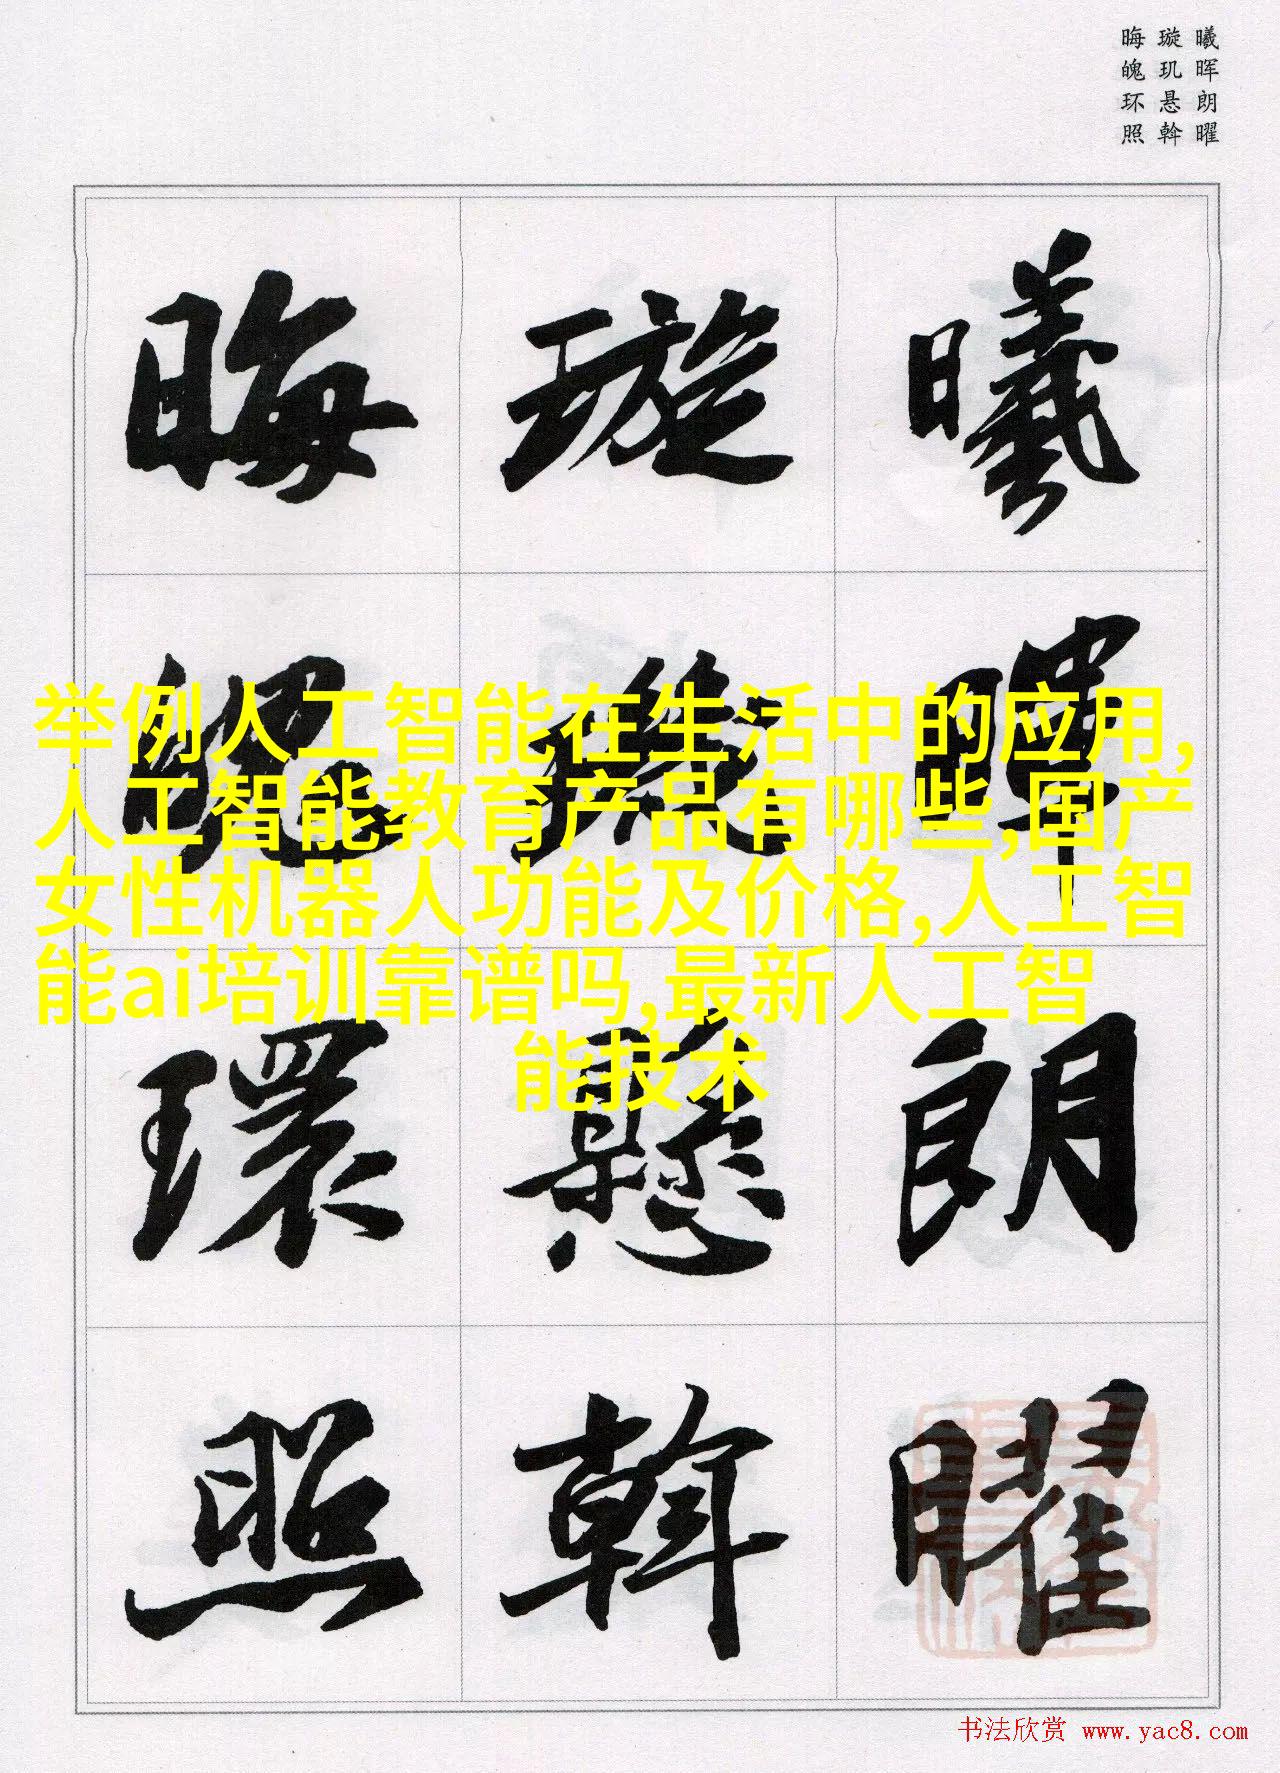 曦晖朗曜
璇玑悬斡
晦魄环照
曦暉朗曜
璇璣懸斡
晦魄環照
举例人工智能在生活中的应用,
人工智能教育产品有哪些,国产
女性机器人功能及价格,人工智
能ai培训靠谱吗,最新人工智
能技术
书法欣赏 www.yac8.com